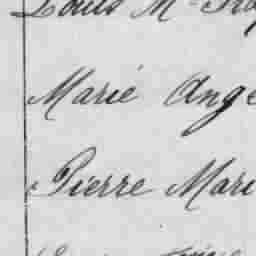 Louis M
Marie Ange
Pierre Mari